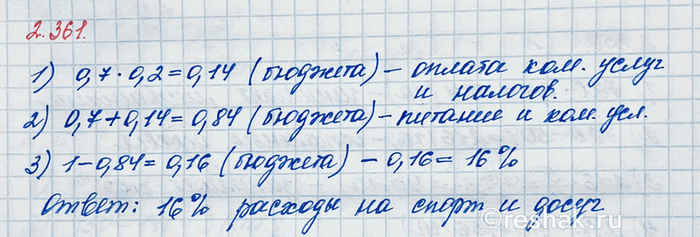 2.361.
1) 0,7 · 0,2 = 0,14 (бюджета) – оплата ком. услуг
и налогов.
2) 0,7 + 0,14 = 0,84 (бюджета) – питание и ком. усл.
3) 1 – 0,84 = 0,16 (бюджета) – 0,16 = 16%
Ответ: 16% расходы на спорт и досуг
©reshak.ru